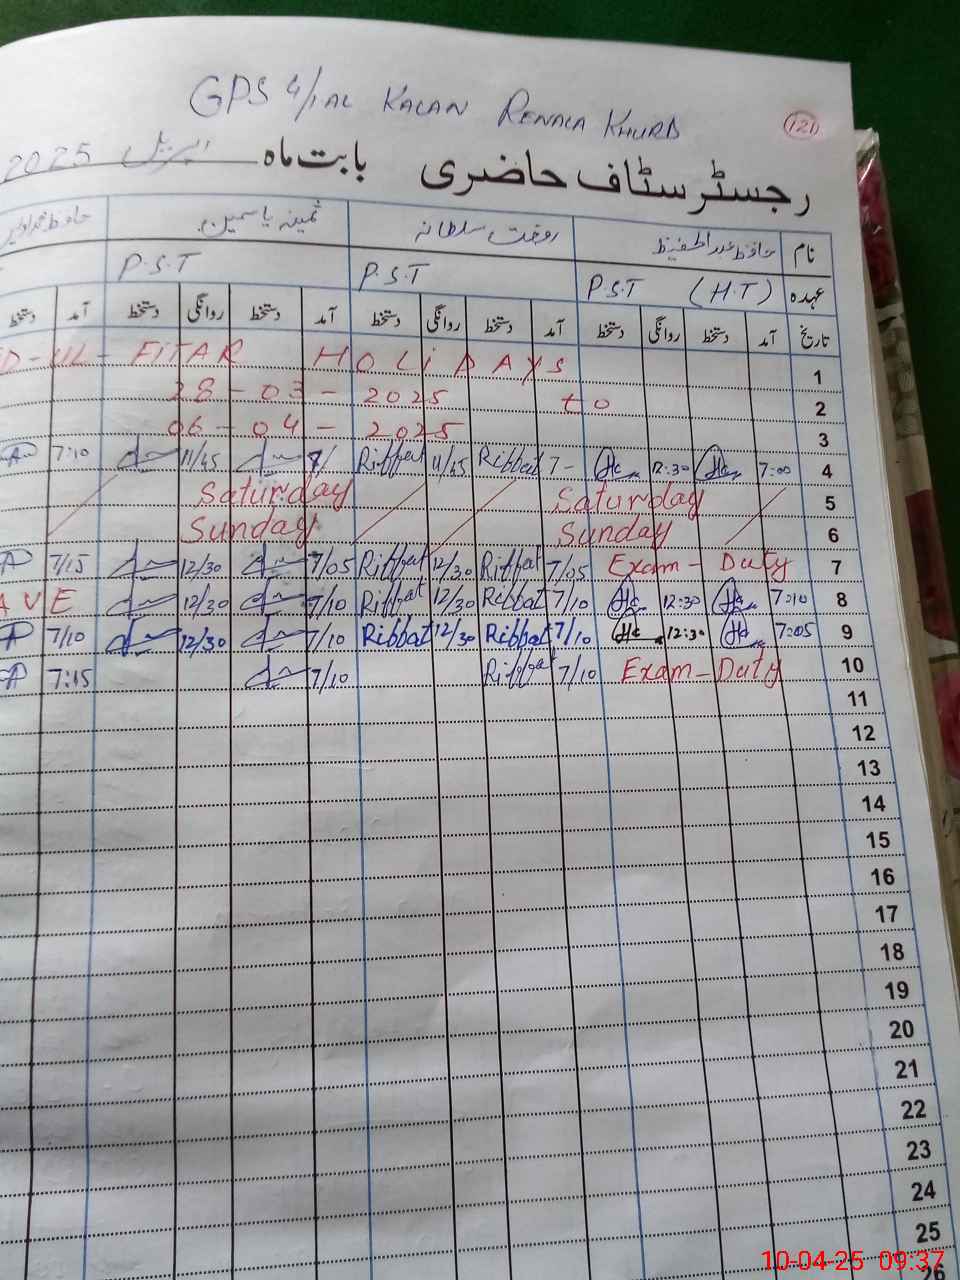 GPS 4/1AL KALAN RENALA KHURD
121
رجسٹر سٹاف حاضری بابت ماہ اپریل 2025
نام حافظ عبدالحفیظ رفعت سلطانہ ثمینہ یاسمین
عہدہ P.S.T (H.T) P.S.T P.S.T
تاریخ آمد دستخط روانگی دستخط آمد دستخط روانگی دستخط آمد دستخط روانگی دستخط آمد دستخط
1 iD-UL-FiTAR HOLiDAYS
2 28-03-2025 to
3 06-04-2025
7:10 11/45 7/ Riffat 11/45 Riffat 7- 12:30 7:00 4
Saturday Saturday 5
Sunday Sunday 6
7/15 12/30 7/05 Riffat 12/30 Riffat 7/05 Exam-Duty 7
AVE 12/30 7/10 Riffat 12/30 Riffat 7/10 12:30 7:10 8
7/10 12/30 7/10 Riffat 12/30 Riffat 7/10 12:30 7:05 9
7:15 7/10 Riffat 7/10 Exam-Duty 10
11
12
13
14
15
16
17
18
19
20
21
22
23
24
25
26
10-04-25 09:37